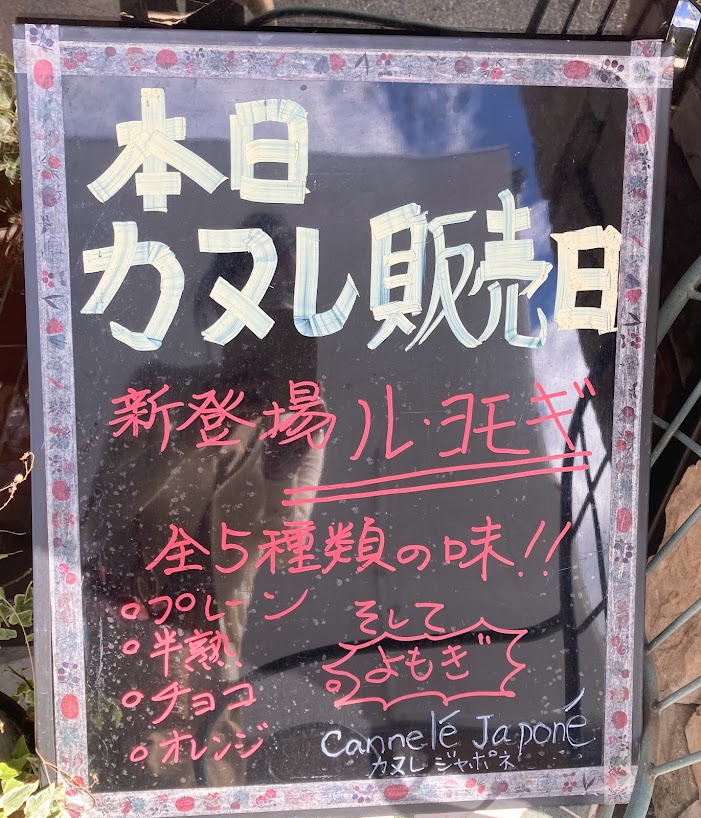 本日
カヌレ販売日
新登場ル・ヨモギ
全5種類の味!!
○プレーン
○半熟
○チョコ
○オレンジ
そして
○よもぎ
Cannelé Japoné
カヌレ ジャポネ